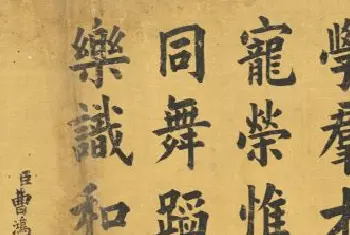 學羣
寵榮惟
同舞蹈
樂識和
臣曹鴻